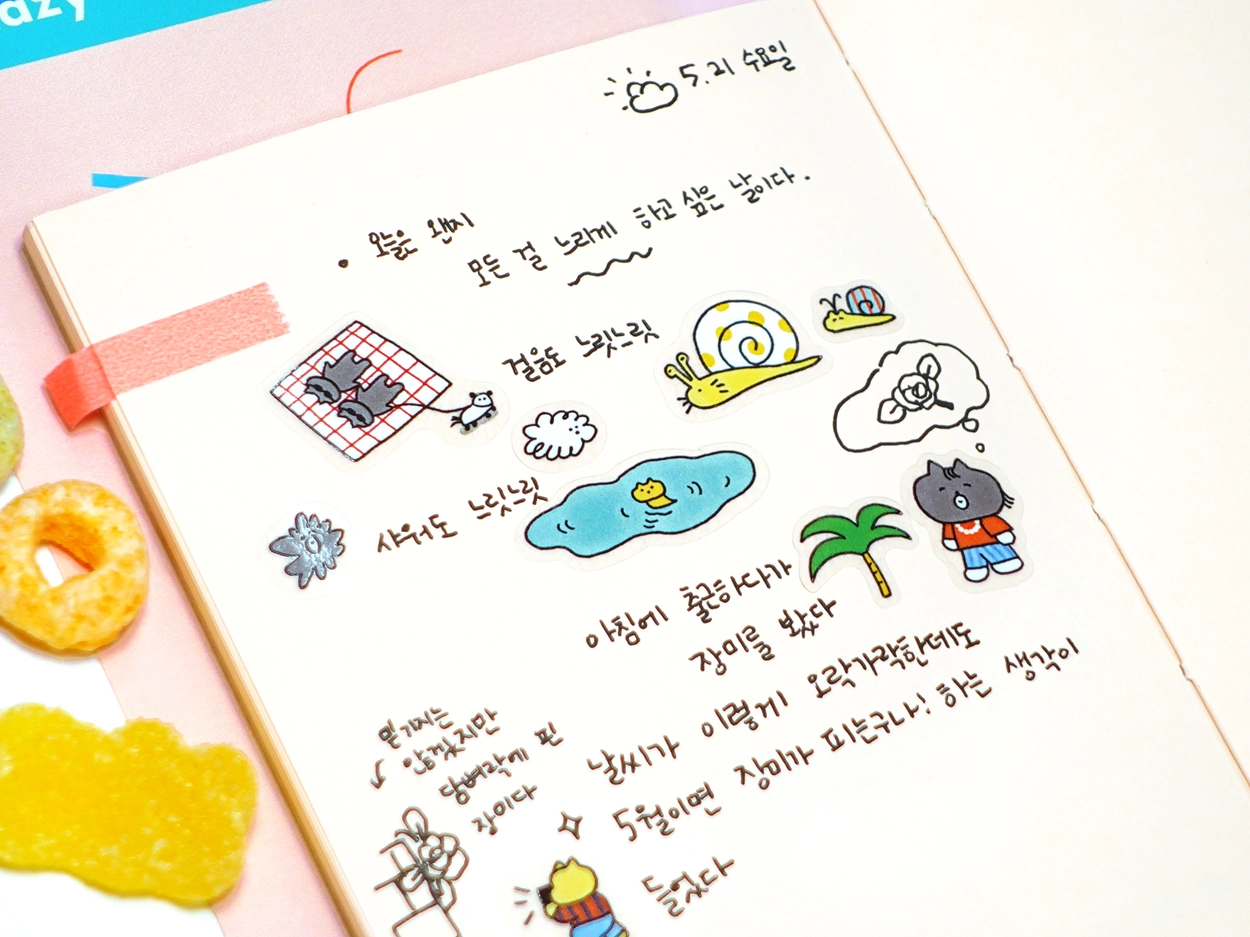 azy
5.21 수요일
• 오늘은 왠지
모든 걸 느리게 하고 싶은 날이다.
걸음도 느릿느릿
샤워도 느릿느릿
아침에 출근하다가
장미를 봤다
날씨가 이렇게 오락가락한데도
5월이면 장미가 피는구나! 하는 생각이
들었다
믿기지는
않겠지만
담벼락에 핀
장미다